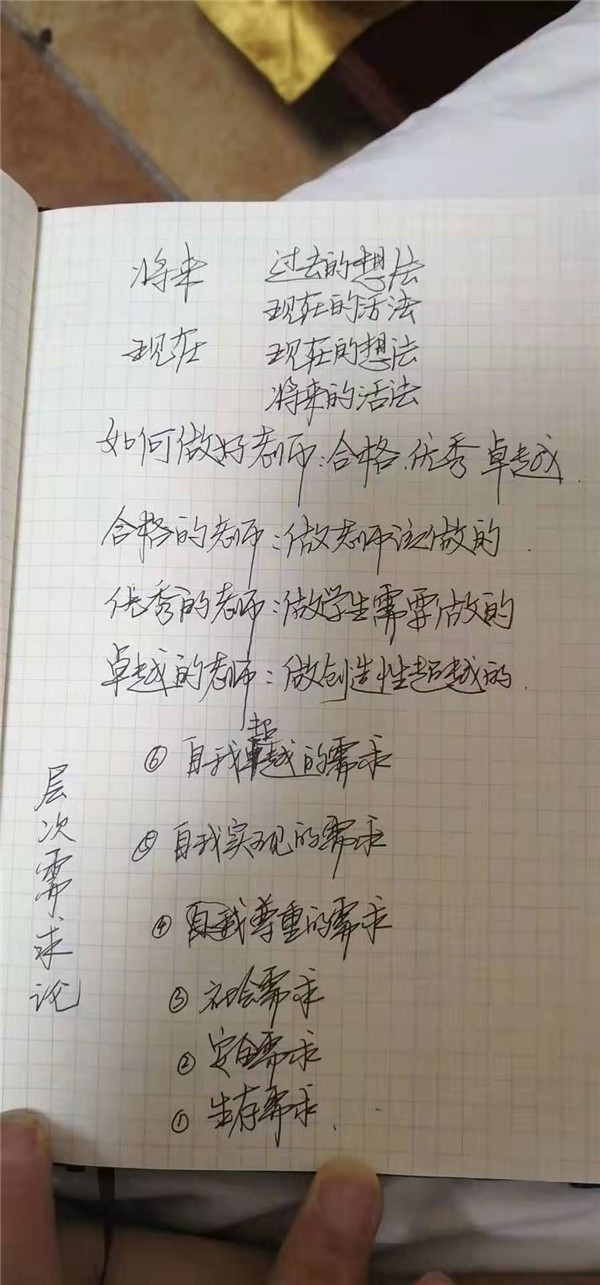 将来 过去的想法
现在的活法
现在 现在的想法
将来的活法
如何做好老师:合格.优秀 卓越.
合格的老师:做老师该做的.
优秀的老师:做学生需要做的
卓越的老师:做创造性超越的.
⑥ 自我超越的需求
⑤ 自我实现的需求
④ 自我尊重的需求
③ 社会需求
② 安全需求
① 生存需求.
层次需求论